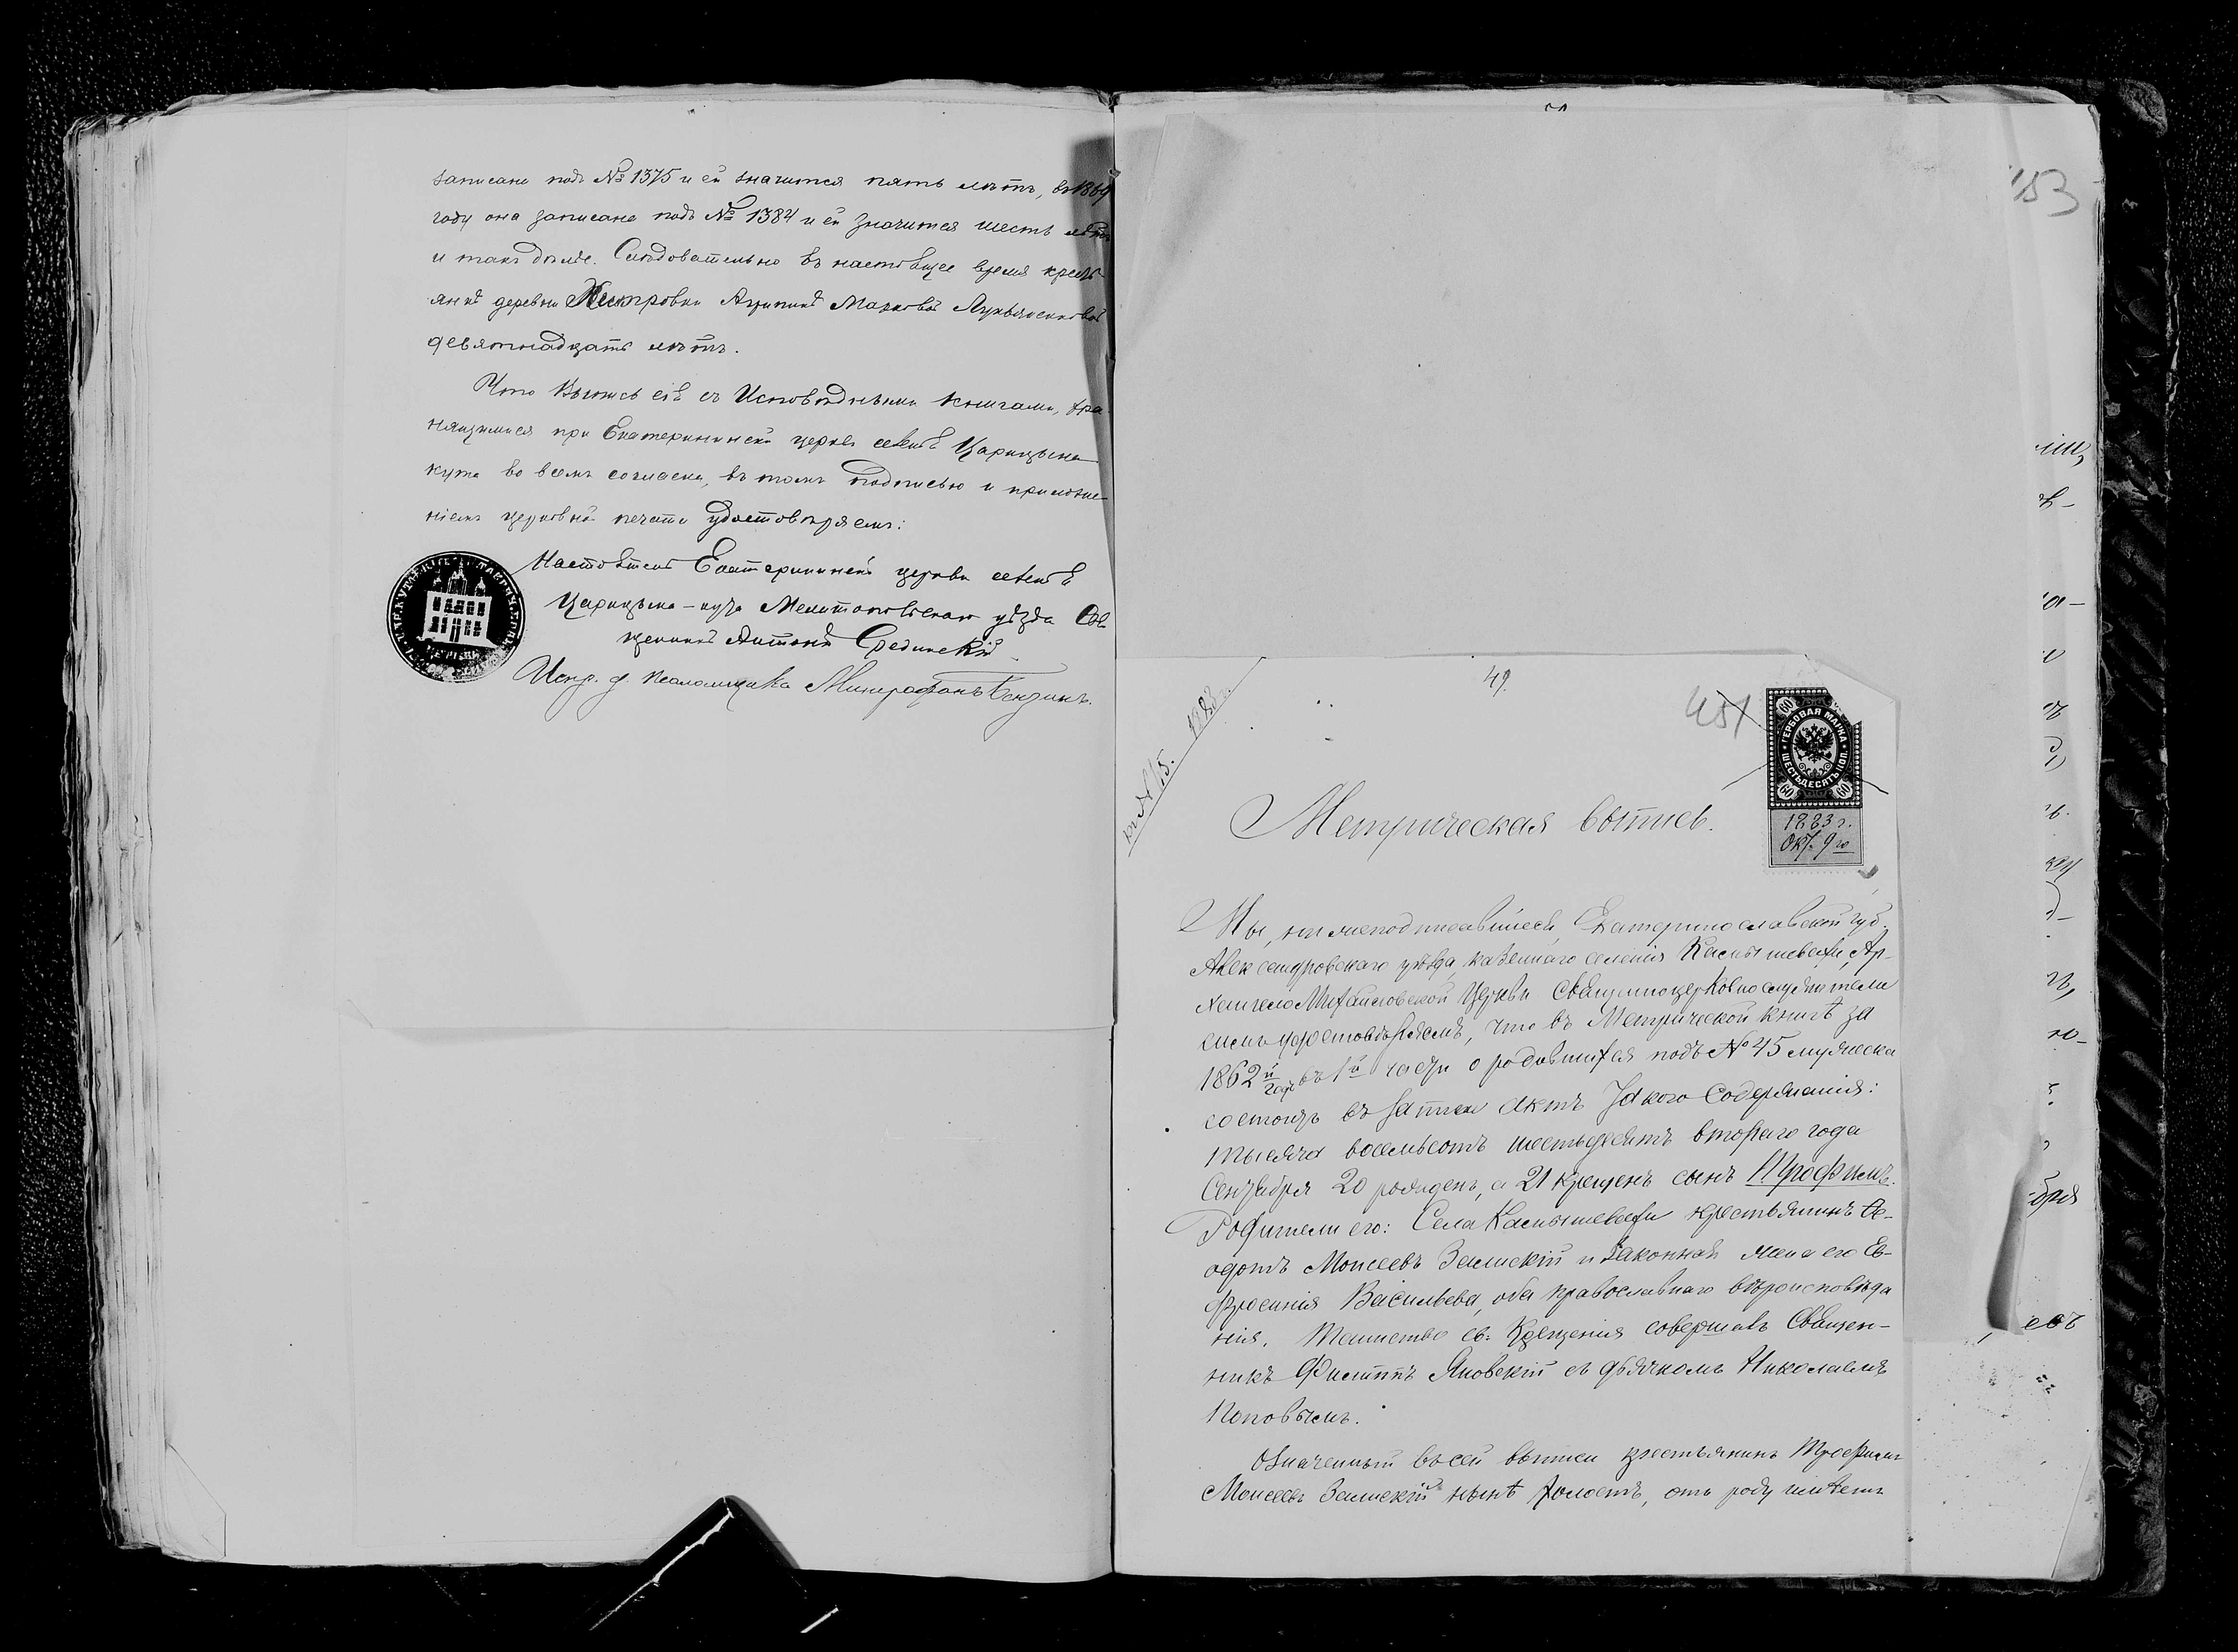 записана подъ № 1375 и ей значится пять лѣтъ, въ 1869
году она записана подъ № 1384 и ей значится шесть лѣтъ
и такъ далѣе. Слѣдовательно въ настоящее время кресть-
янкѣ деревни Дмитровки Агрипинѣ Марковой Лукьяненковой
девятнадцать лѣтъ.
Что выпись сія съ Исповѣдными книгами, хра-
нящимися при Екатерининской церкви селенія Царицына
кута во всемъ согласна, въ томъ подписью и приложе-
ніемъ церковной печати удостовѣряемъ:
Настоятель Екатерининской церкви селенія
Царицына-кута Мелитопольскаго уѣзда Свя-
щенникъ Антоній Срединскій
Испр. д. псаломщика Митрофанъ
153
49.
451
къ № 15. 1883 г.
ГЕРБОВАЯ МАРКА
ШЕСТЬДЕСЯТЪ КОП.
60 60 60
1883 г.
Окт. 9 го
Метрическая выпись.
Мы, нижеподписавшіеся, Екатеринославской губ.
Александровскаго уѣзда, казеннаго селенія Камышевахи, Ар-
хангело Михайловской Церкви Священноцерковнослужители
симъ удостовѣряемъ, что въ Метрической книгѣ за
1862 й годъ въ 1 й части о родившихся подъ № 45 мужеска
состоитъ въ записи актъ такого содержанія:
тысяча восемьсотъ шестьдесятъ втораго года
Сентября 20 рожденъ, а 21 крещенъ сынъ Трофимъ.
Родители его: Села Камышевахи крестьянинъ Ѳе-
одотъ Моисеевъ Замискій и законная жена его Ев-
фросинія Васильева, оба православнаго вѣроисповѣда
нія. Таинство св. Крещенія совершалъ Священ-
никъ Филиппъ Яновскій съ дьячкомъ Николаемъ
Поповымъ.
Означенный въ сей выписи крестьянинъ Трофимъ
Моисеевъ Замискій нынѣ холостъ, отъ роду имѣетъ